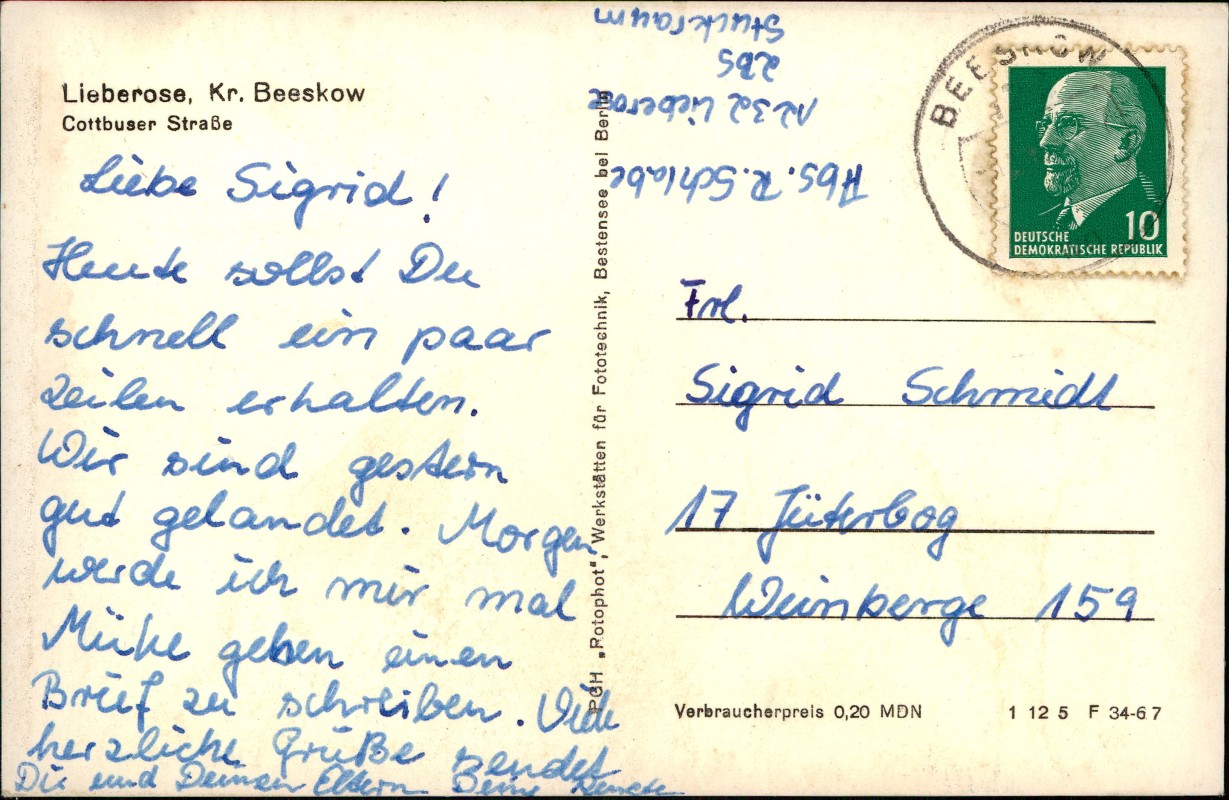 Lieberose, Kr. Beeskow
Cottbuser Straße
Liebe Sigrid!
Heute sollst Du
schnell ein paar
Zeilen erhalten.
Wir sind gestern
gut gelandet. Morgen
werde ich mir mal
Mühe geben einen
Brief zu schreiben. Viele
herzliche Grüße sendet
Dir und Deinen Eltern Deine
PGH „Rotophot", Werkstätten für Fototechnik, Bestensee bei Berlin
Abs. R. Schlabe
Lieberose
ZBS
Stuckraum
BEESKOW
10
DEUTSCHE
DEMOKRATISCHE REPUBLIK
Frl.
Sigrid Schmidt
17 Jüterbog
Weinberge 159
Verbraucherpreis 0,20 MDN
1 12 5 F 34-67